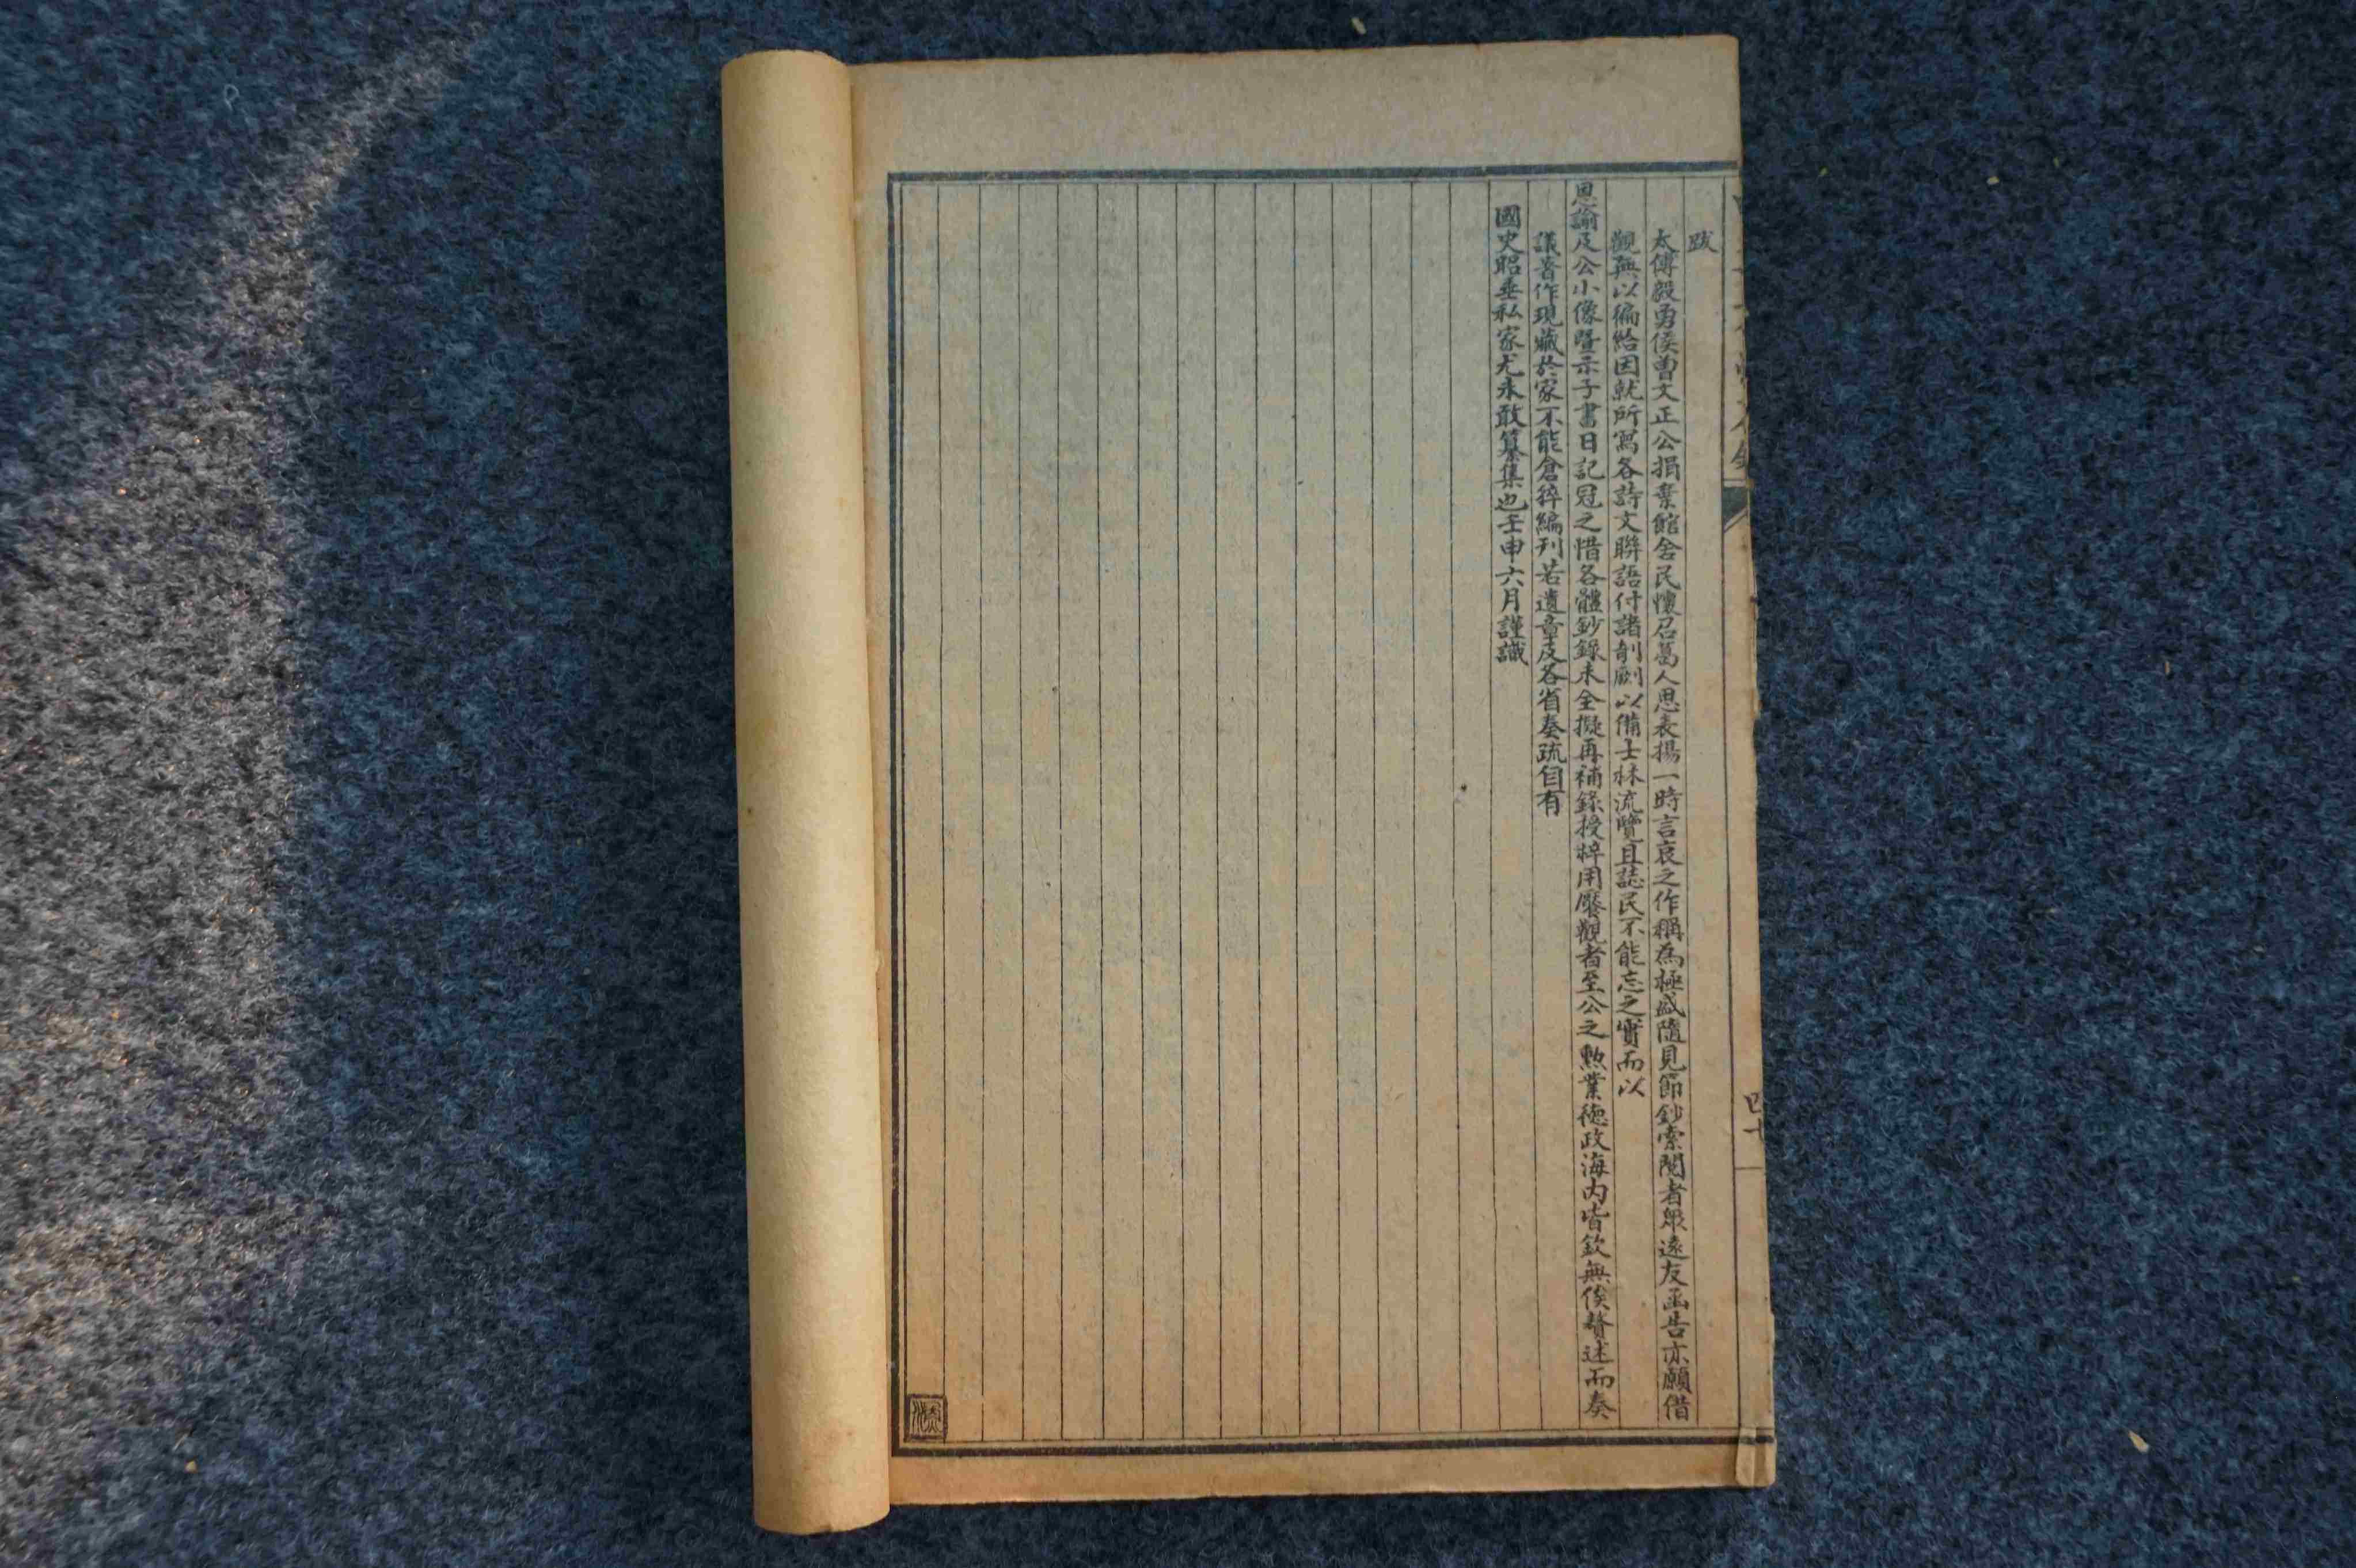 跋
太傅毅勇侯曾文正公捐棄館舍民懷召葛人思表揚一時言哀之作稱為極盛隨見節鈔索閱者眾遠友函告亦願借
觀無以徧給因就所寫各詩文聯語付諸剞劂以備士林流覽且誌民不能忘之實而以
恩諭及公小像暨示子書日記冠之惜各體鈔錄未全擬再補錄授梓用饜觀者至公之勲業德政海內皆欽無俟贅述而奏
議著作現藏於家不能倉猝編刊若遺章及各省奏疏自有
國史昭垂私家尤未敢纂集也壬申六月謹識
四十